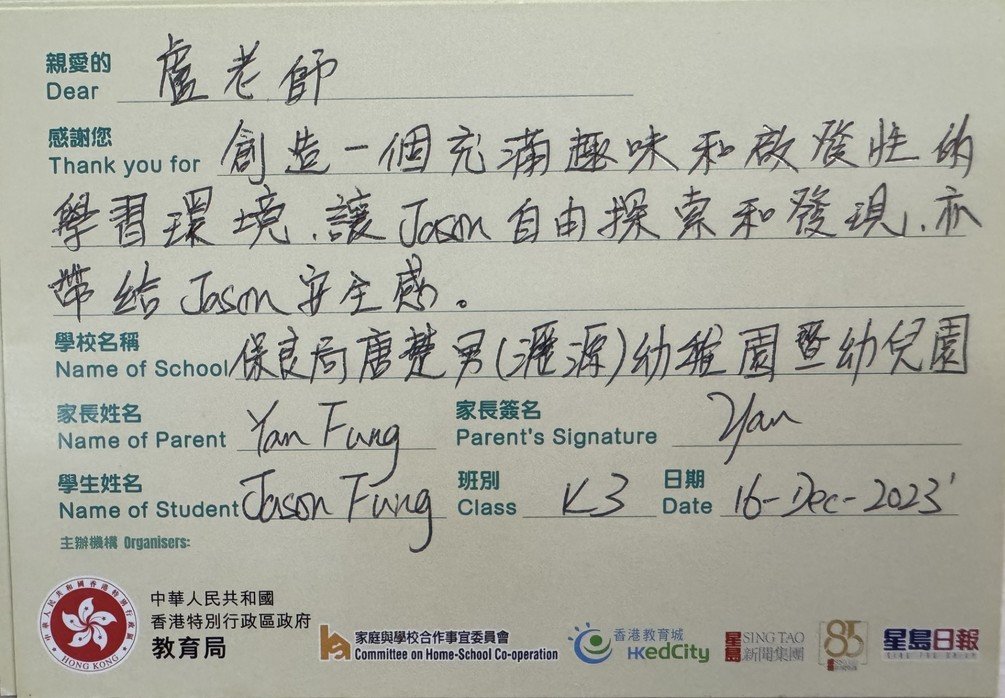 親愛的 盧老師
Dear
感謝您 創造一個充滿趣味和啟發性的
Thank you for
學習環境,讓Jason自由探索和發現,亦
帶給Jason安全感。
學校名稱 保良局唐楚男(滙源)幼稚園暨幼兒園
Name of School
家長姓名 Yan Fung 家長簽名 Yan
Name of Parent Parent's Signature
學生姓名 Jason Fung 班別 K3 日期 16-Dec-2023
Name of Student Class Date
主辦機構 Organisers:
中華人民共和國
香港特別行政區政府
教育局
中華人民共和國香港特別行政區
HONG KONG
家庭與學校合作事宜委員會
Committee on Home-School Co-operation
香港教育城
HKedCity
星島 SING TAO
新聞集團
85
星島日報